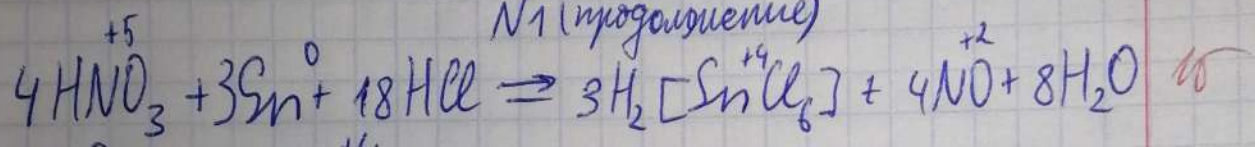 N1 (продолжение)
4HN⁺⁵O₃ + 3Sn⁰ + 18HCl = 3H₂[Sn⁺⁴Cl₆] + 4N⁺²O + 8H₂O 1б